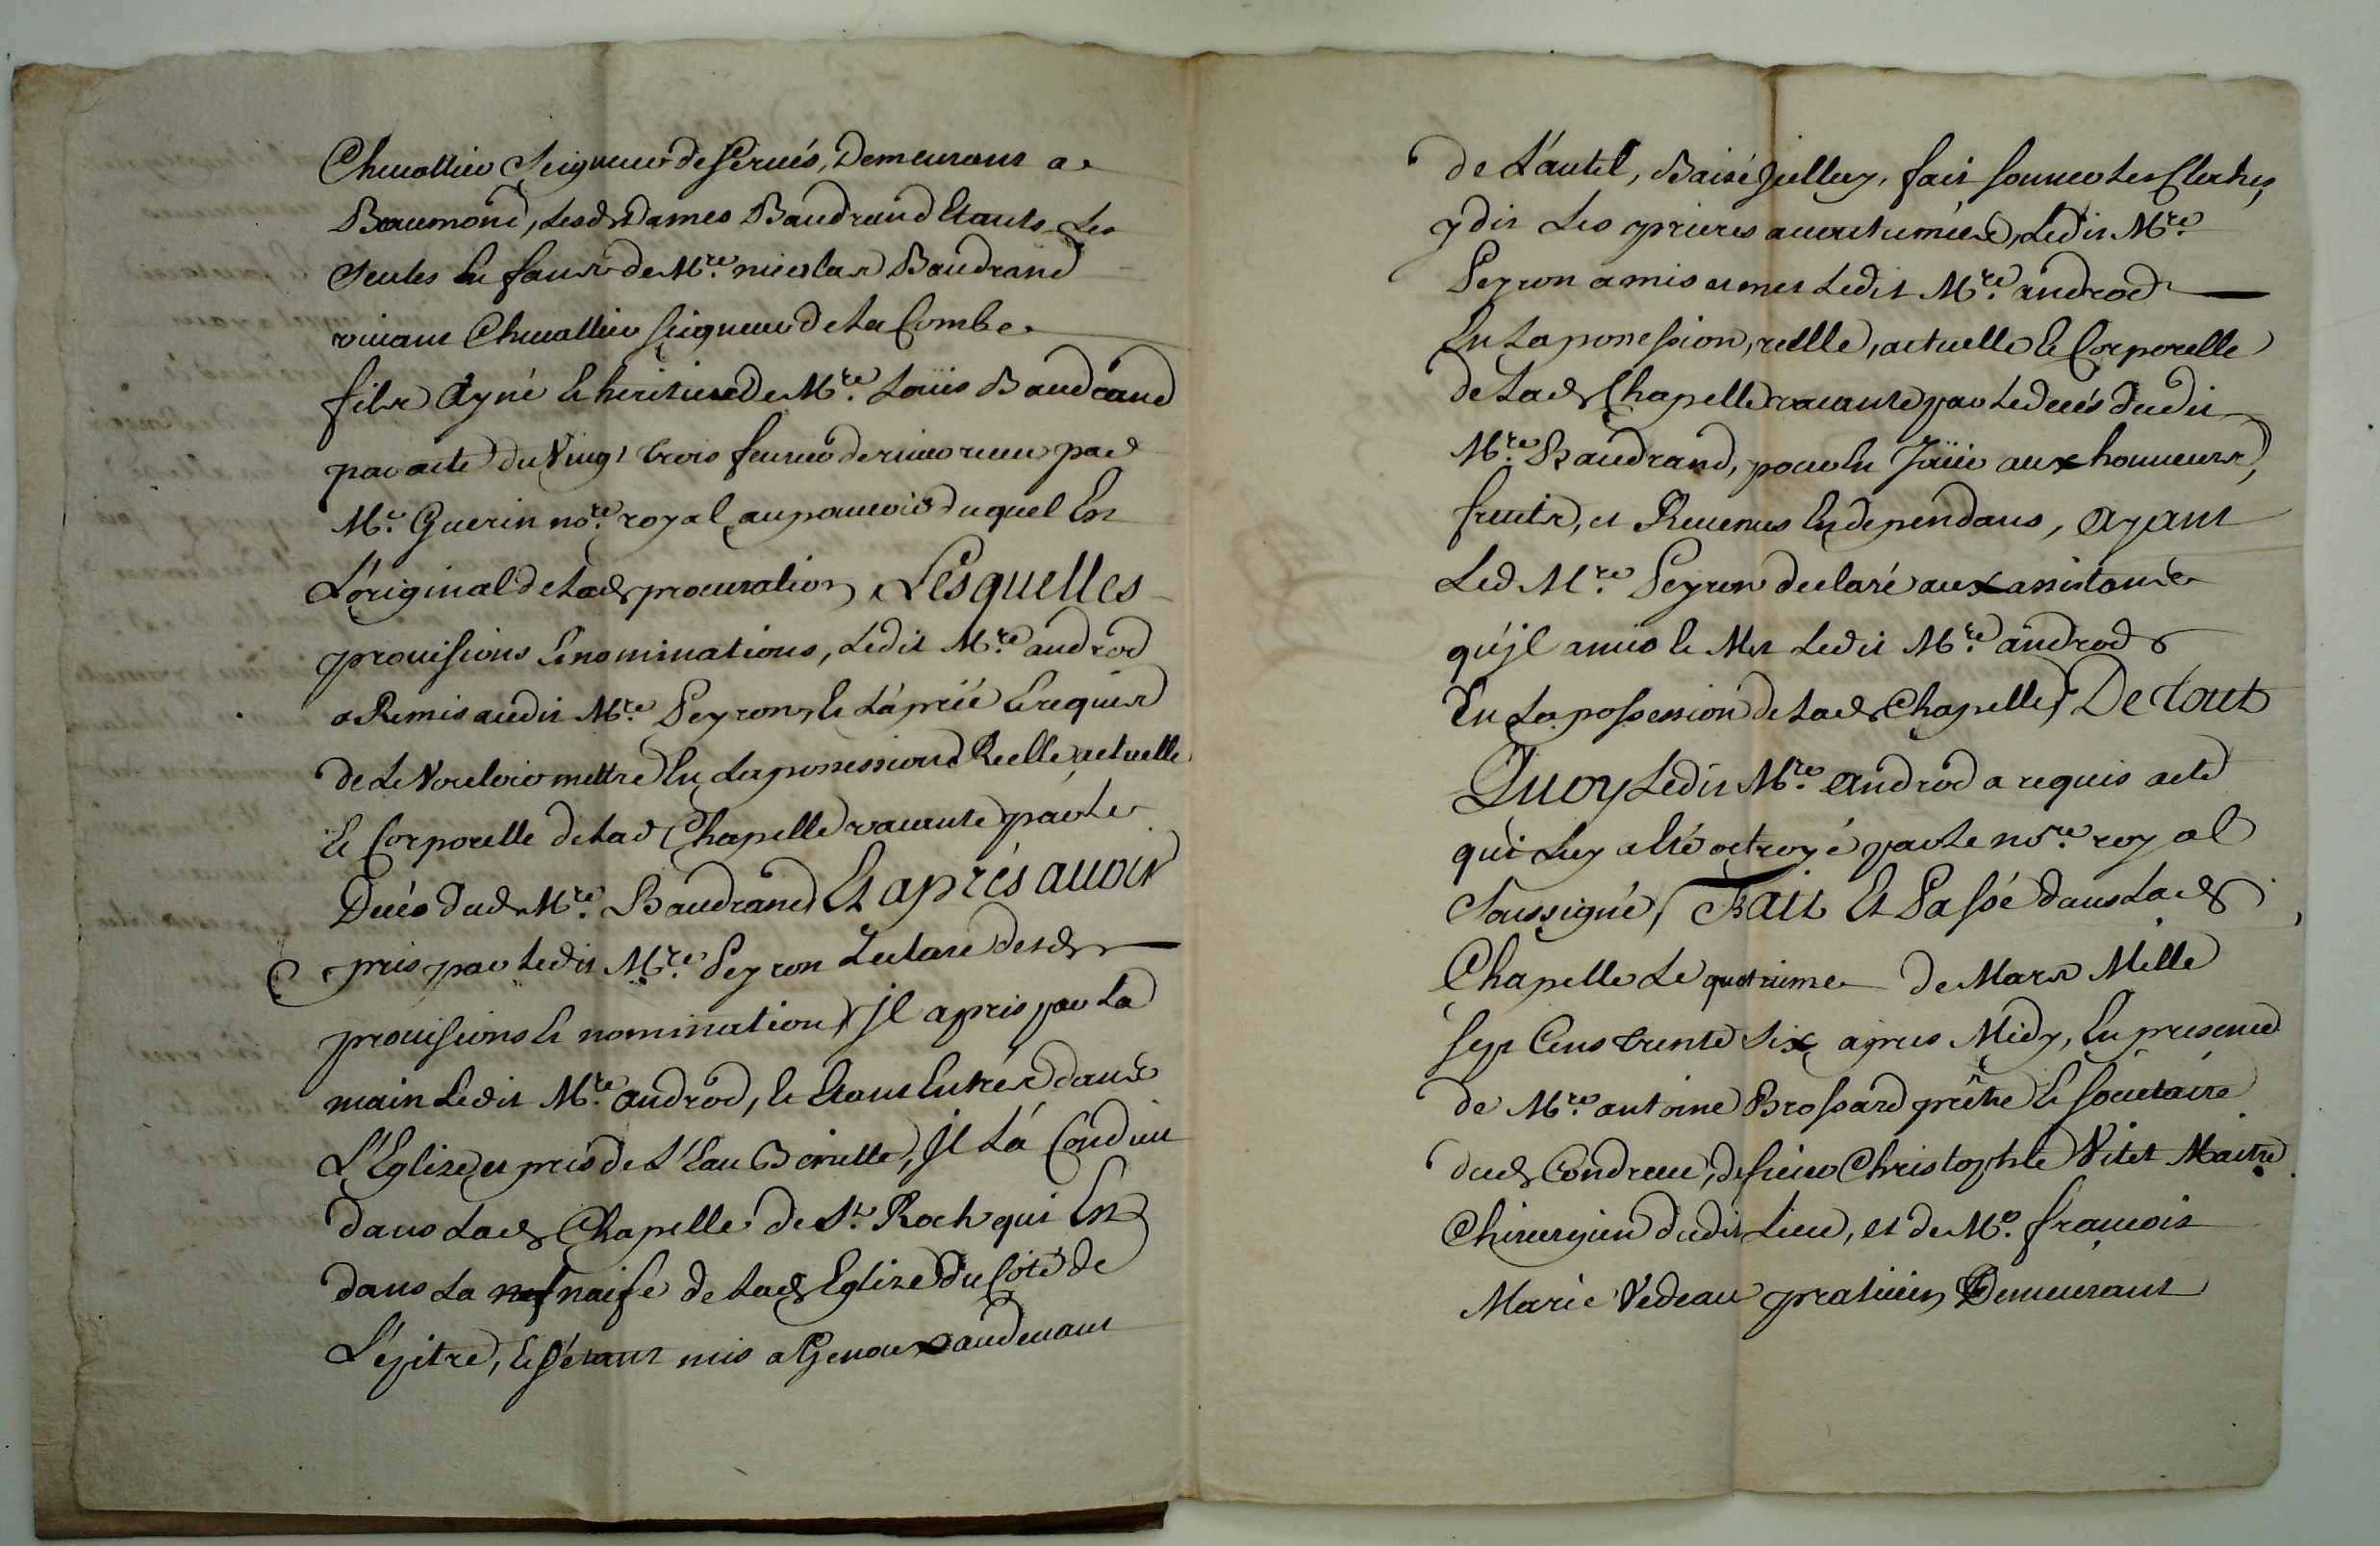 Chevallier Seigneur de Servés, Demeurant a
Beaumond, lesd. Dames Baudrand Etants Les
Seules Enfants de Mre. nicolas Baudrand
vivant Chevallier Seigneur de La Combe
fils Ayné et heritier de Mre. Loüis Baudrand
par acte du Vingt trois fevrier dernier receu par
Me. Guerin nore. royal au pouvoir duquel Est
L'original de lad. procuration, Lesquelles
provisions et nominations, Ledit Mre. androd
a Remis audit Mre. Peyron, et L'a prié et requis
de Le Vouloir mettre En La possession Reelle actuelle
et Corporelle de lad. Chapelle vacante par Le
Decés dud. Mre. Baudrand Et aprés avoir
pris par Ledit Mre. Peyron Lecture desd.
provisions et nomination, Jl a pris par La
main Ledit Mre. androd, et Etant Entrés dans
L'Eglize et pris de L'Eau Benitte, Jl L'a Conduit
dans Lad. Chapelle de St. Roch qui Est
dans La nef naife de Lad. Eglize du Coté de
L'épitre, et s'étant mis a Genoux audevant
de L'autel, Baisé Jcelluy, fait sonner Les Cloches,
y dit Les prieres accoutumées, Ledit Mre.
Peyron a mis et met Ledit Mre. androd
En La possession, reelle, actuelle et Corporelle
de Lad. Chapelle vacante par Le decés dudit
Mre. Baudrand, pour En Joüir aux honneurs,
fruits, et Revenus En dependans, Ayant
Led. Mre. Peyron declaré aux assistans
qu'jl a mis et Met Ledit Mre. androd
En La possession de Lad. Chapelle, De tout
Quoy Ledit Mre. androd a requis acte
qui Luy a Eté octroyé par Le nore. royal
Soussigné, Fait Et Passé dans Lad.
Chapelle Le quatrieme de Mars Mille
sept Cens trente six apres Midy, En presence
de Mre. antoine Brossard prêtre et societaire
dud. Condrieu, de sieur Christophle Vitet Maitre
Chirurgien dudit Lieu, et de Me. françois
Marie Vedeau praticien Demeurant